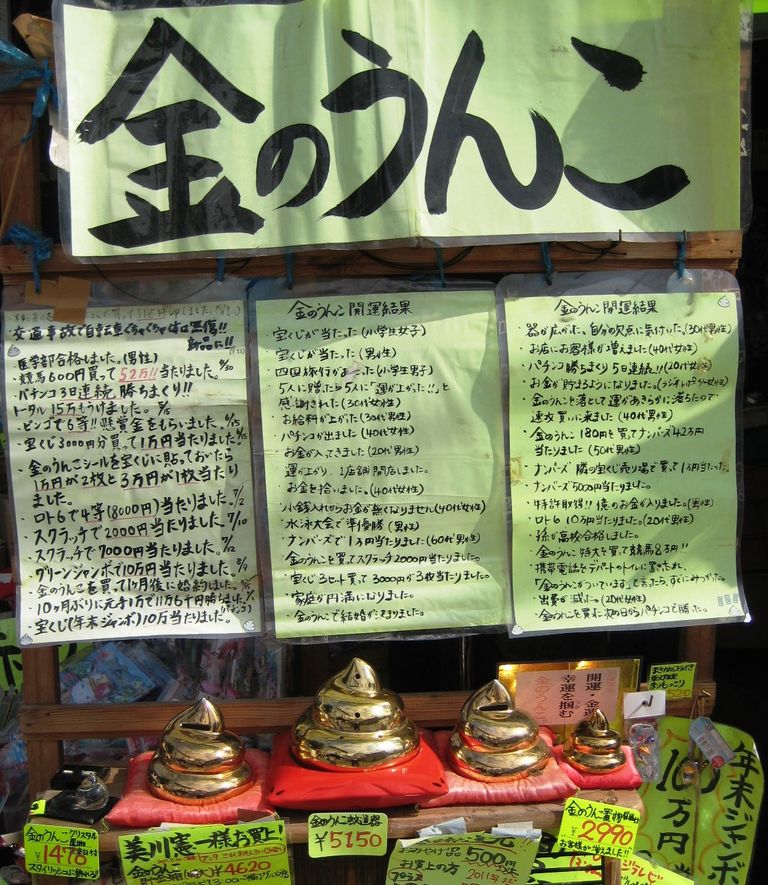 金のうんこ
交通事故で自転車ぐちゃぐちゃ体は無傷!!
新品に!!
医学部合格しました。(男性)
・競馬600円買って52万!!当たりました。
・パチンコ3日連続勝ちまくり!!
トータル15万もうけました。
・ビンゴで6等!!懸賞金をもらいました。
・宝くじ3000円分買って1万円当たりました。
・金のうんこシールを宝くじに貼っておいたら
1万円が2枚と3万円が1枚当たり
ました。
・ロト6で4等(8000円)当たりました。7/2
・スクラッチで2000円当たりました。7/10
・スクラッチで7000円当たりました。
・グリーンジャンボで10万円当たりました。
・金のうんこを買って1ヶ月後に婚約しました。
・10ヶ月ぶりに元手1万で11万6千円勝ちました。(パチンコ)
・宝くじ(年末ジャンボ)10万当たりました。
金のうんこ開運結果
・宝くじが当たった(小学生女子)
・宝くじが当たった(男性)
・四国旅行が当たった(小学生男子)
・5人に贈ったら5人に「運が上がった!!」と
感謝された(30代女性)
・お給料が上がった(30代男性)
・パチンコが出ました(40代女性)
・お金が入ってきました(20代男性)
・運が上がり、2店舗開店しました。
・お金を拾いました。(40代女性)
・小銭入れからお金が無くなりません(40代女性)
・水泳大会で準優勝(男性)
・ナンバーズで1万円当たりました(60代男性)
・金のうんこを買ってスクラッチ2000円当たりました。
・宝くじ3セット買って3000円が3枚当たりました。
・家庭が円満になりました。
・金のうんこで結婚が決まりました。
金のうんこ開運結果
・器が広がった。自分の欠点に気付いた。(30代男性)
・お店にお客様が増えました(40代女性)
・パチンコ勝ちまくり5日連続!!(20代女性)
・お金が貯まるようになりました。(ラジオレポーター女性)
・金のうんこを落として運があきらかに落ちたので
速攻買いに来ました(40代男性)
・金のうんこ180円を買ってナンバーズ42万円
当たりました(50代男性)
・ナンバーズ勝の宝くじ売り場で買って1万円当たった。
・ナンバーズ5000円当たりました。
・特許取得!!億のお金が入りました。(男性)
・ロト6 10万円当たりました。(20代男性)
・孫が高校合格しました。
・金のうんこ特大を買って競馬8万円!!
・携帯電話をデパートのトイレに置き忘れ
「金のうんこがついています」と言ったら、すぐにみつかった。
・出費が減った。(20代女性)
・金のうんこを買った次の日からパチンコで勝った。
開運・金運
幸運を掴む
金のうんこ
金のうんこクリスタル
¥1470
美川憲一様お買上!
金のうんこ
¥4620
金のうんこ貯金箱
¥5150
500円
お買上の方
金のうんこ置物
¥2990
お客様が増えました!!
年末ジャンボ
10万円